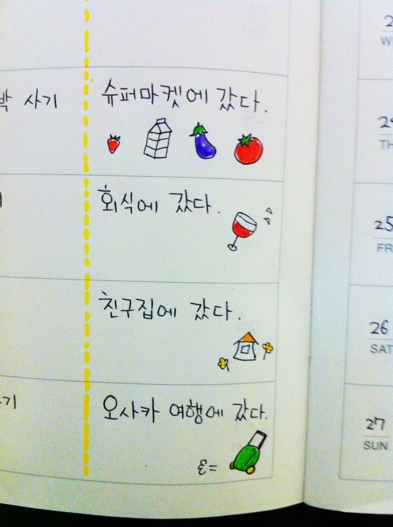 박 사기
슈퍼마켓에 갔다.
회식에 갔다.
친구집에 갔다.
기
오사카 여행에 갔다.
2
24
TH
25
FR
26
SAT
27
SUN